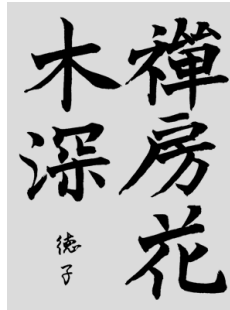 禪房花
木深
徳子